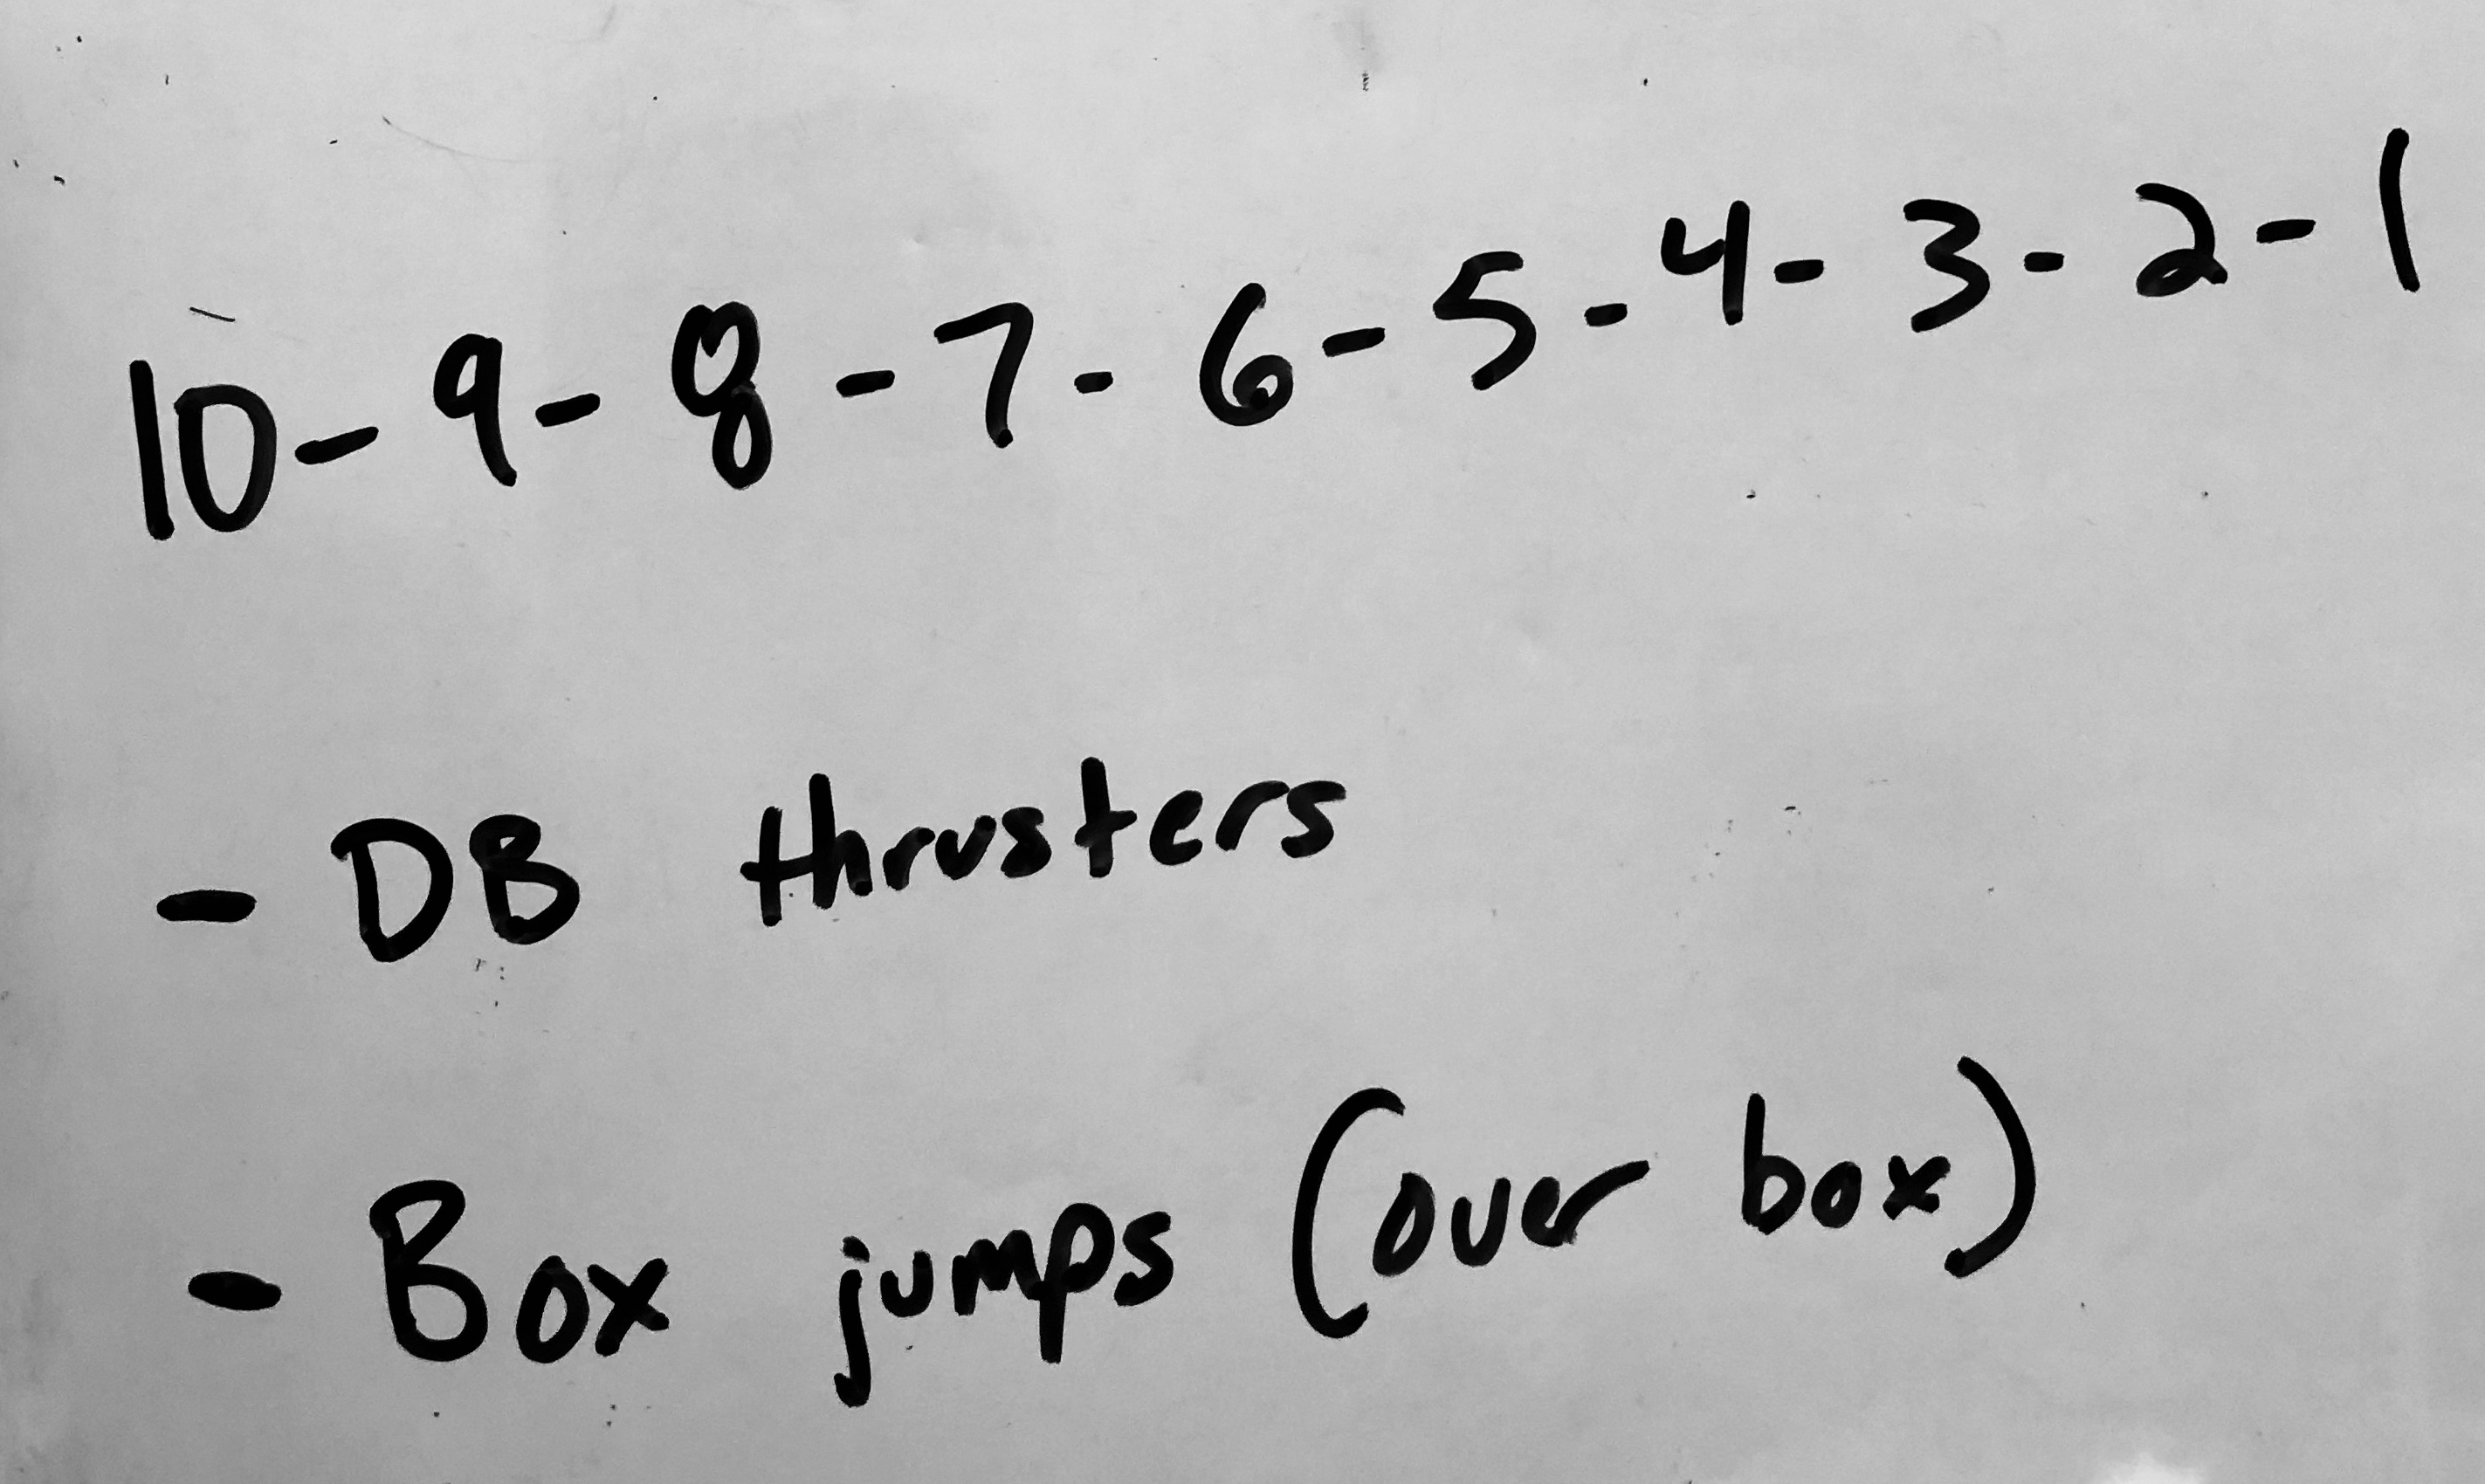 10-9-8-7-6-5-4-3-2-1
- DB thrusters
- Box jumps (over box)